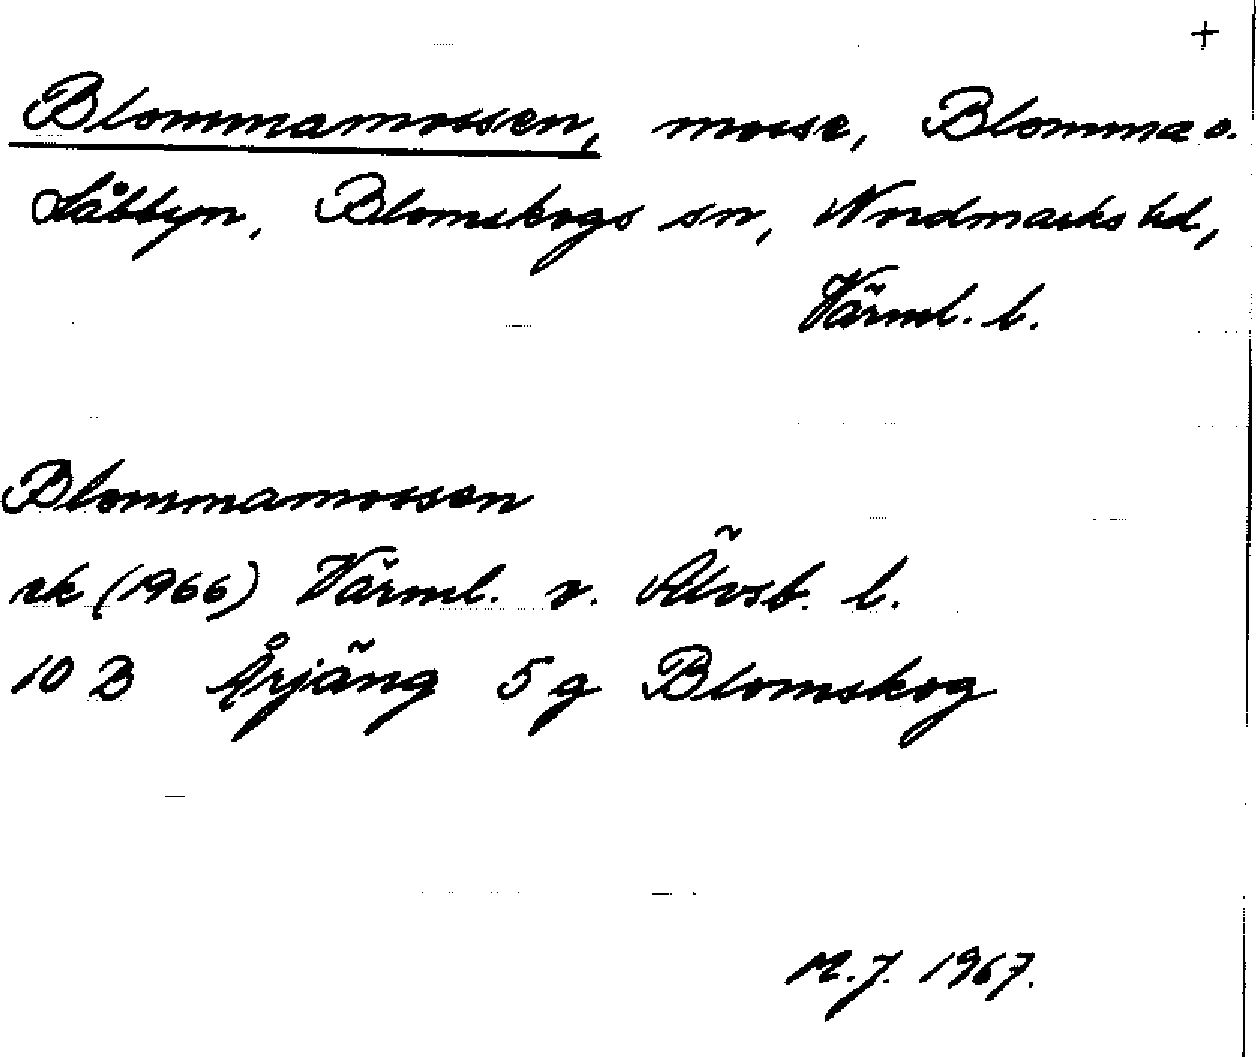 +
Blommamossen, mosse, Blomma o.
Låbbyn, Blomskogs sn, Nordmarks hd,
Värml. l.
Blommamossen
rk (1966) Värml. o. Älvsb. l.
10 B Årjäng 5 g Blomskog
M.J. 1967.